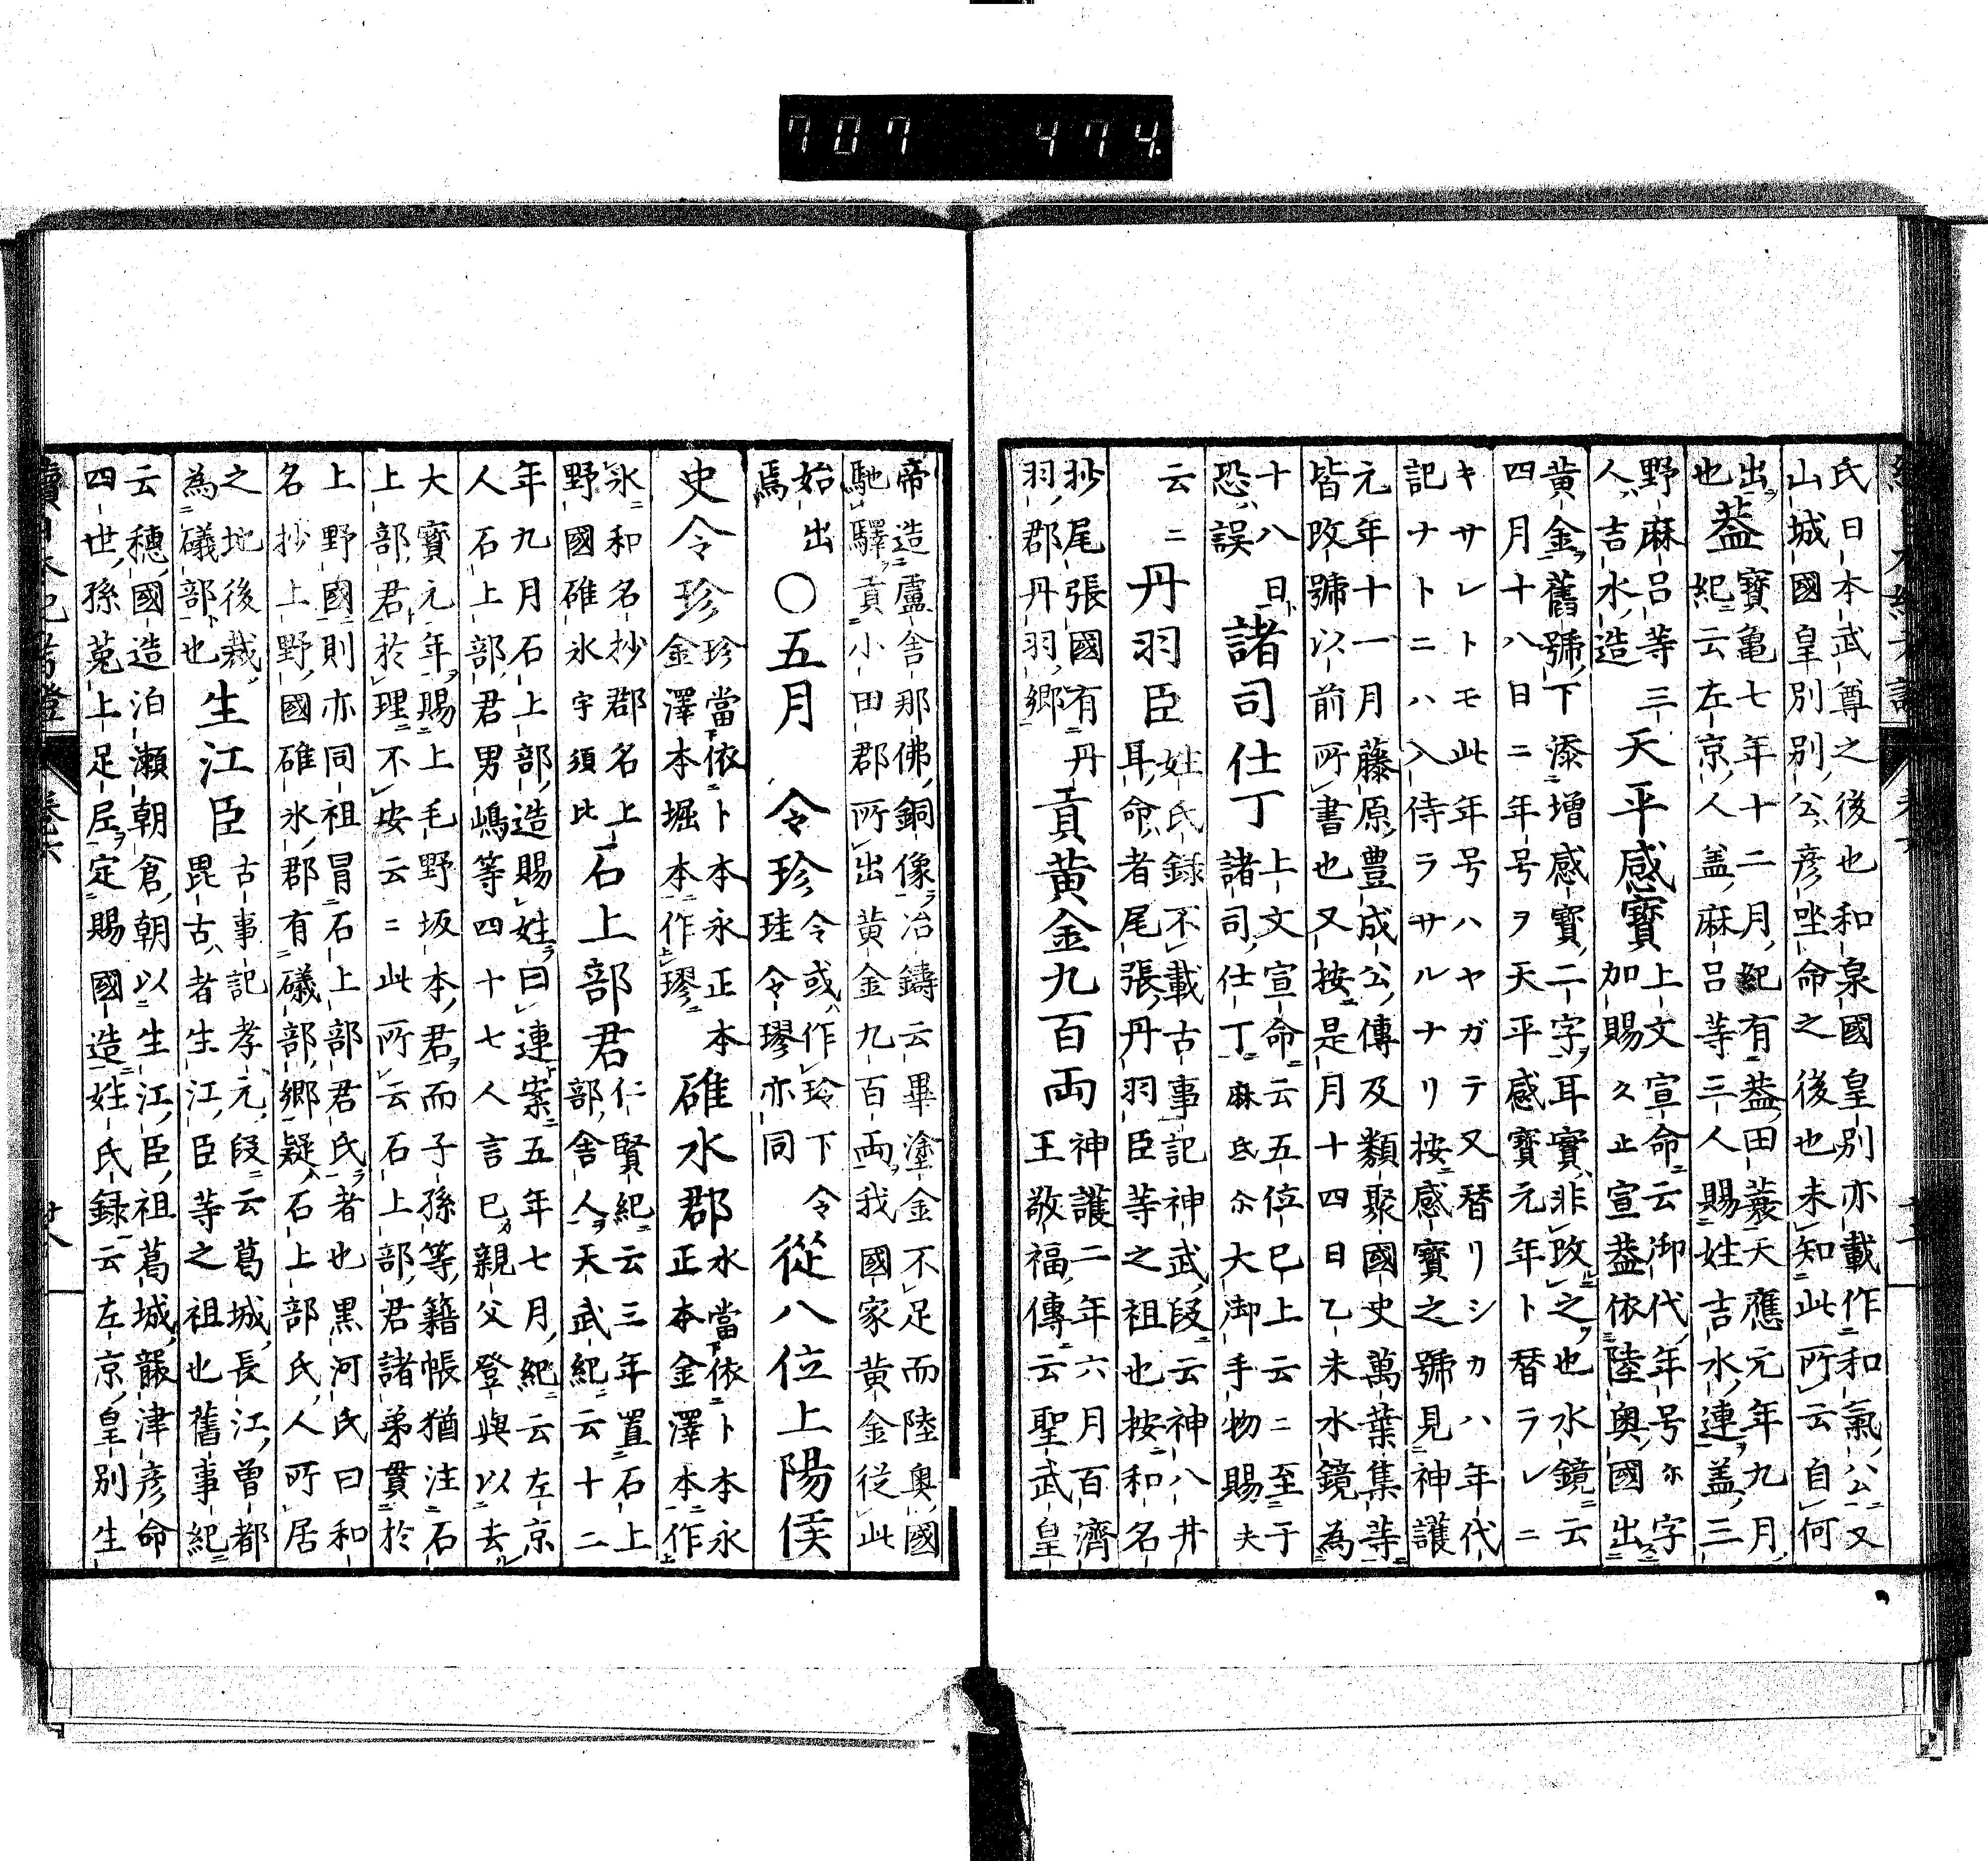 707 474.
氏日本武尊之後也和泉國皇別亦載作和氣公又
山城國皇別別公彦坐命之後也未知此所云自何
出
益
寶龜七年十二月紀有益田蓑天應元年九月
也紀云左京人益麻呂等三人賜姓吉水連益三
野麻呂等三
人吉水造
天平感寶
上文宣命云御代年号尓字
加賜久止宣益依陸奥國出
黄金舊號下添増感寶二字耳實非改之也水鏡云
四月十八日ニ年号ヲ天平感寶元年ト暦ラレニ
キサレトモ此年号ハヤガテ又暦リシカハ年代
記ナトニハ入侍ラサルナリ按感寶之號見神護
元年十一月藤原豊成公傳及類聚國史萬葉集等
皆改號以前所書也又按是月十四日乙未水鏡為
十八日
恐誤
諸司仕丁
上文宣命云五位已上云ニ至于
諸司仕丁麻氐尓大御手物賜夫
云ニ
丹羽臣
姓氏録不載古事記神武段云神八井
耳命者尾張丹羽臣等之祖也按和名
抄尾張國有丹
羽郡丹羽郷
貢黄金九百両
神護二年六月百濟
王敬福傳云聖武皇
帝造盧舎那佛銅像冶鑄云畢塗金不足而陸奥國
馳驛貢小田郡所出黄金九百両我國家黄金従此
始出
焉
○五月
令珍
令或作玲下令
珪令璆亦同
從八位上陽侯
史令珍
珍當依卜本永正本
金澤本堀本作璆
碓水郡
水當依卜本永
正本金澤本作
氷和名抄郡名上
野國碓氷宇須比
石上部君
仁賢紀云三年置石上
部舎人天武紀云十二
年九月石上部造賜姓曰連案五年七月紀云左京
人石上部君男嶋等四十七人言己親父登與以去
大寶元年賜上毛野坂本君而子孫等籍帳猶注石
上部君於理不安云ニ此所云石上部君諸弟貫於
上野國則亦同祖冒石上部君氏者也黒河氏曰和
名抄上野國碓氷郡有礒部郷疑石上部氏人所居
之地後裁
為礒部也
生江臣
古事記孝元段云葛城長江曽都
毘古者生江臣等之祖也舊事紀
云穂國造泊瀬朝倉朝以生江臣祖葛城襲津彦命
四世孫菟上足尼定賜國造姓氏録云左京皇別生